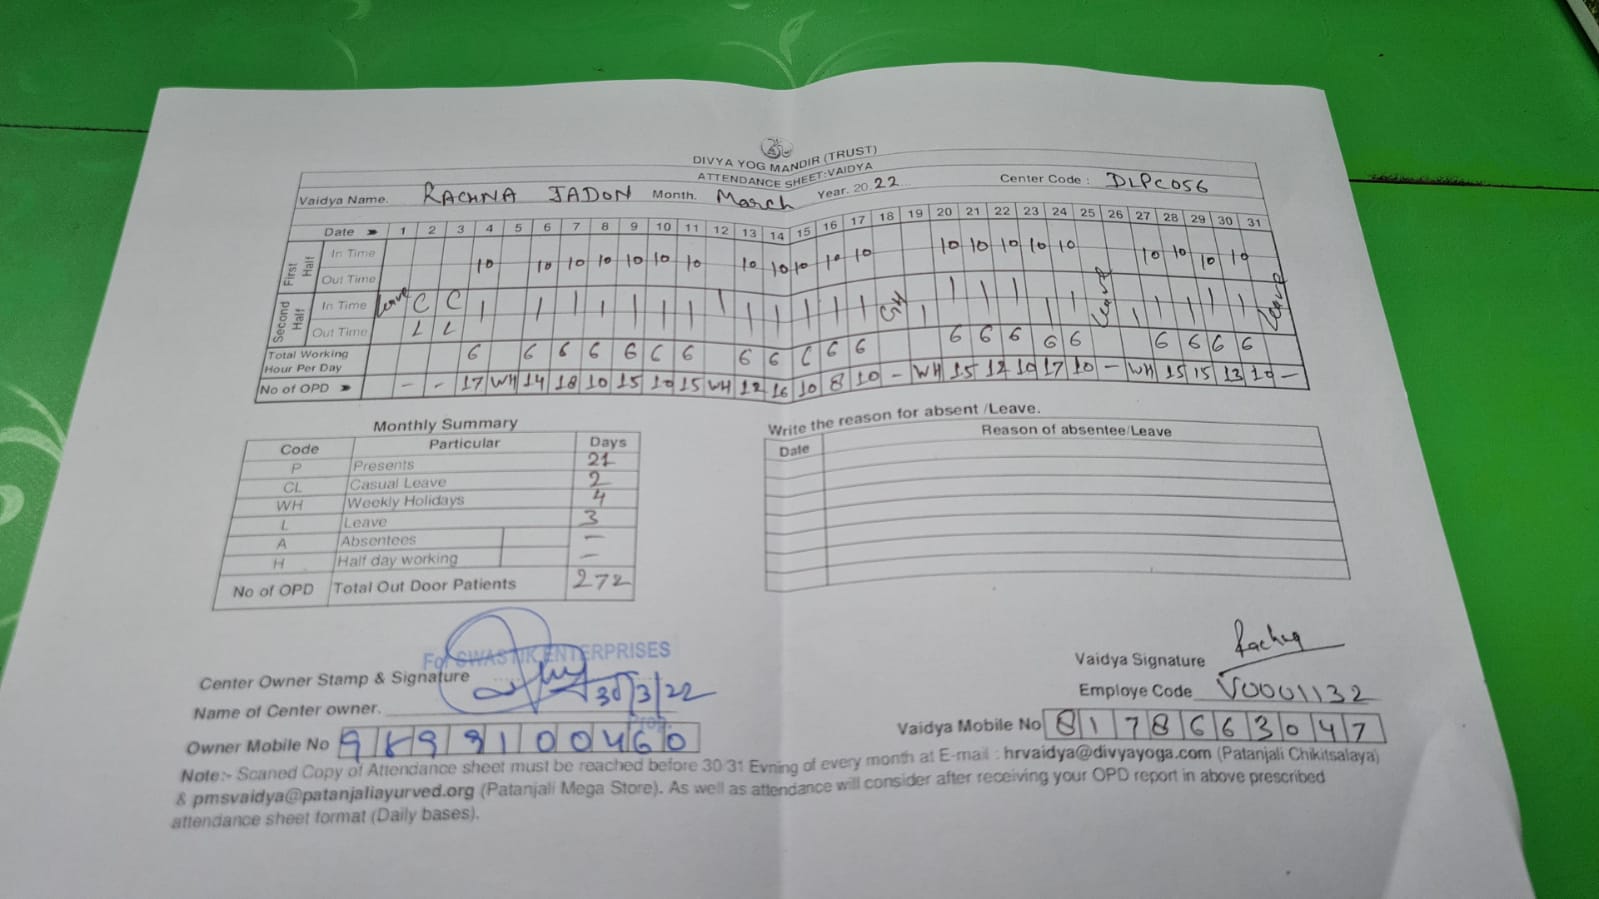 DIVYA YOG MANDIR (TRUST)
ATTENDANCE SHEET:VAIDYA
Vaidya Name. RACHNA JADON Month. March Year. 2022 Center Code : DLPC056
Date 1 2 3 4 5 6 7 8 9 10 11 12 13 14 15 16 17 18 19 20 21 22 23 24 25 26 27 28 29 30 31
First Half
In Time 10 10 10 10 10 10 10 10 10 10 10 10 10 10 10 10 10 10 10 10 10
Out Time
Second Half
In Time Leave C C
Out Time L L
Total Working Hour Per Day 6 6 6 6 6 6 6 6 6 6 6 6 6 6 6 6 6 6 6 6 6
No of OPD - - 17 WH 14 18 10 15 10 15 WH 12 16 10 8 10 - WH 15 12 10 17 10 - WH 15 15 13 10 -
Monthly Summary
Code Particular Days
P Presents 21
CL Casual Leave 2
WH Weekly Holidays 4
L Leave 3
A Absentees -
H Half day working -
No of OPD Total Out Door Patients 272
Write the reason for absent /Leave.
Date Reason of absentee/Leave
For SWASTIK ENTERPRISES
Center Owner Stamp & Signature
30/3/22
Name of Center owner.
Prop.
Owner Mobile No 9899100460
Vaidya Signature Rachna
Employe Code V0001132
Vaidya Mobile No 8178663047
Note:- Scaned Copy of Attendance sheet must be reached before 30/31 Evning of every month at E-mail : hrvaidya@divyayoga.com (Patanjali Chikitsalaya)
& pmsvaidya@patanjaliayurved.org (Patanjali Mega Store). As well as attendance will consider after receiving your OPD report in above prescribed
attendance sheet format (Daily bases).